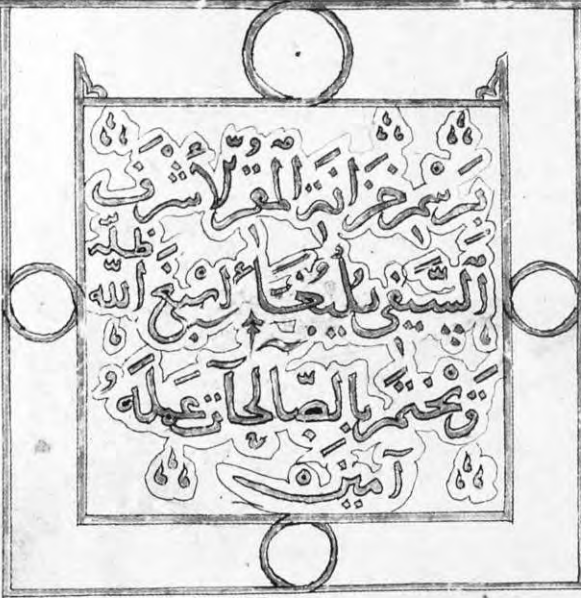 بِرَسْمِ خَزَانَةِ الْمَقَرِّ الْأَشْرَفِ
السَّيْفِي يَلْبُغَا أَسْبَغَ اللَّه ظِلَّه
وَيَخْتِمْ بِالصَّالِحَاتِ عَمَلَهُ
آمِين